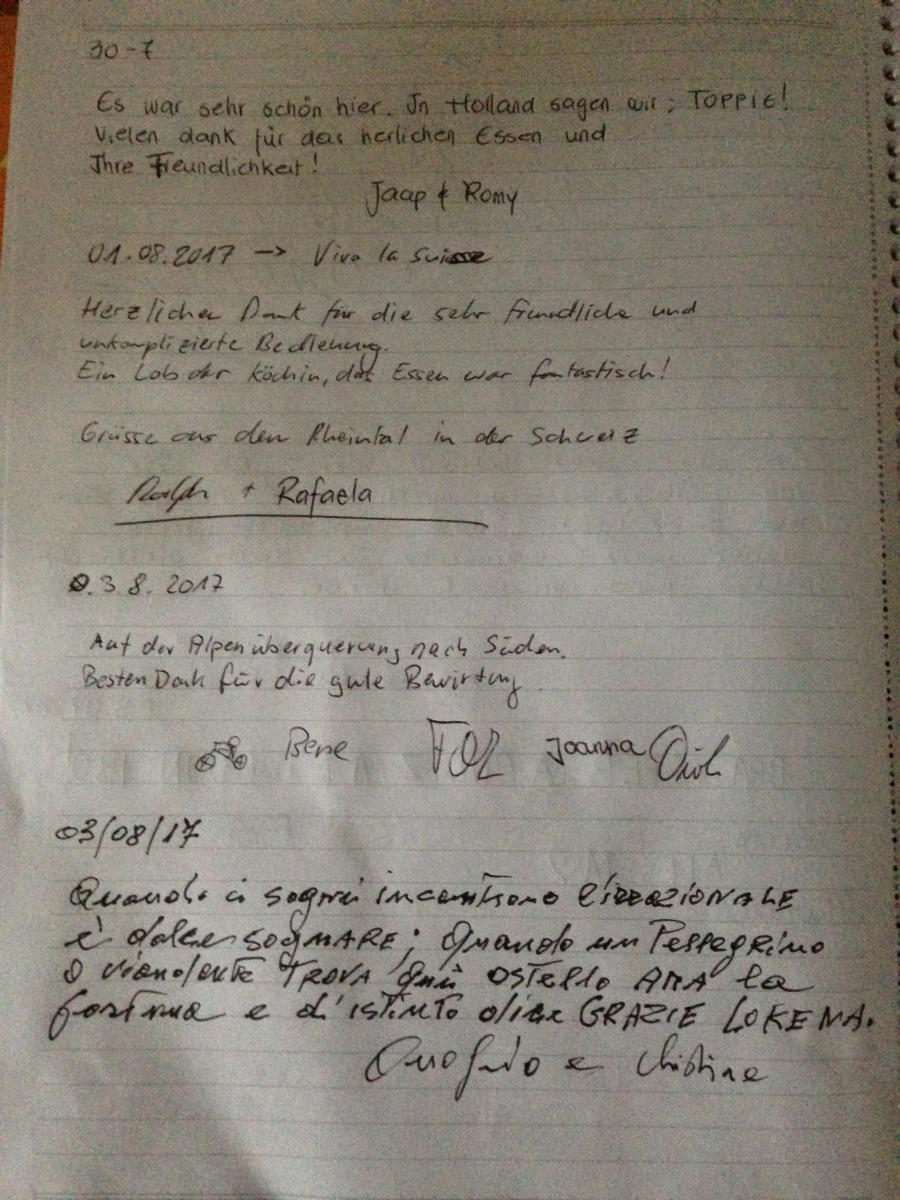 30-7
Es war sehr schön hier. In Holland sagen wir; TOPPIE!
Vielen dank für das herlichen Essen und
Ihre Freundlichkeit!
Jaap & Romy
01.08.2017 → Viva la Suisse
Herzlichen Dank für die sehr freundliche und
unkomplizierte Bedienung.
Ein Lob der Köchin, das Essen war fantastisch!
Grüsse aus dem Rheintal in der Schweiz
Ralph + Rafaela
03.8.2017
Auf der Alpenüberquerung nach Süden.
Besten Dank für die gute Bewirtung
Bene Joanna
03/08/17
Quando i sogni incontrano l'irrazionale
è dolce sognare; Quando un Pellegrino
o viandante TROVA quì OSTELLO AMA la
fortuna e d'istinto dice GRAZIE LOKENA.
e Christine